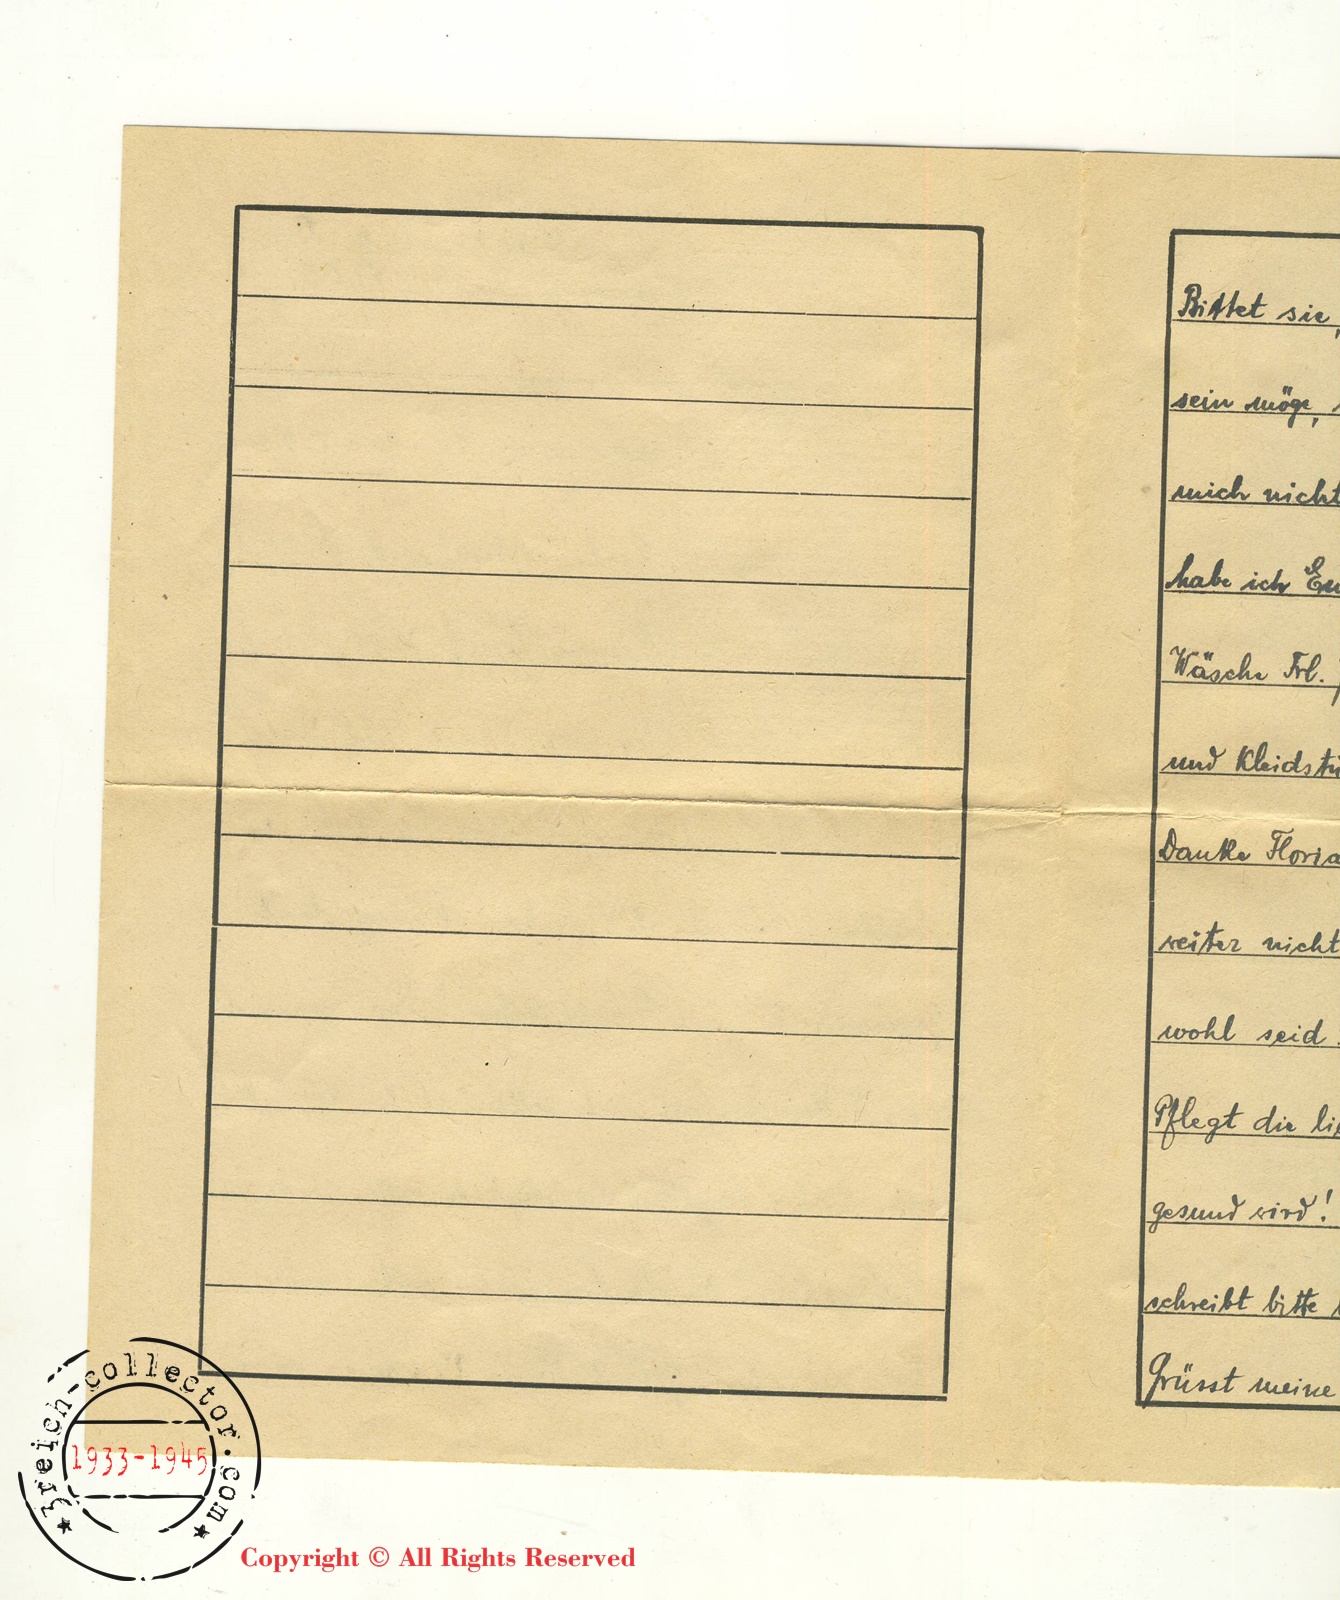 Bittet sie,
sein möge,
mich nicht
habe ich
Wäsche Frl.
und Kleidstü
Danke Floria
weiter nicht
wohl seid
Pflegt die lie
gesund wird!
schreibt bitte
Grüsst meine
★ 3reich-collector.com ★
1933-1945
Copyright © All Rights Reserved